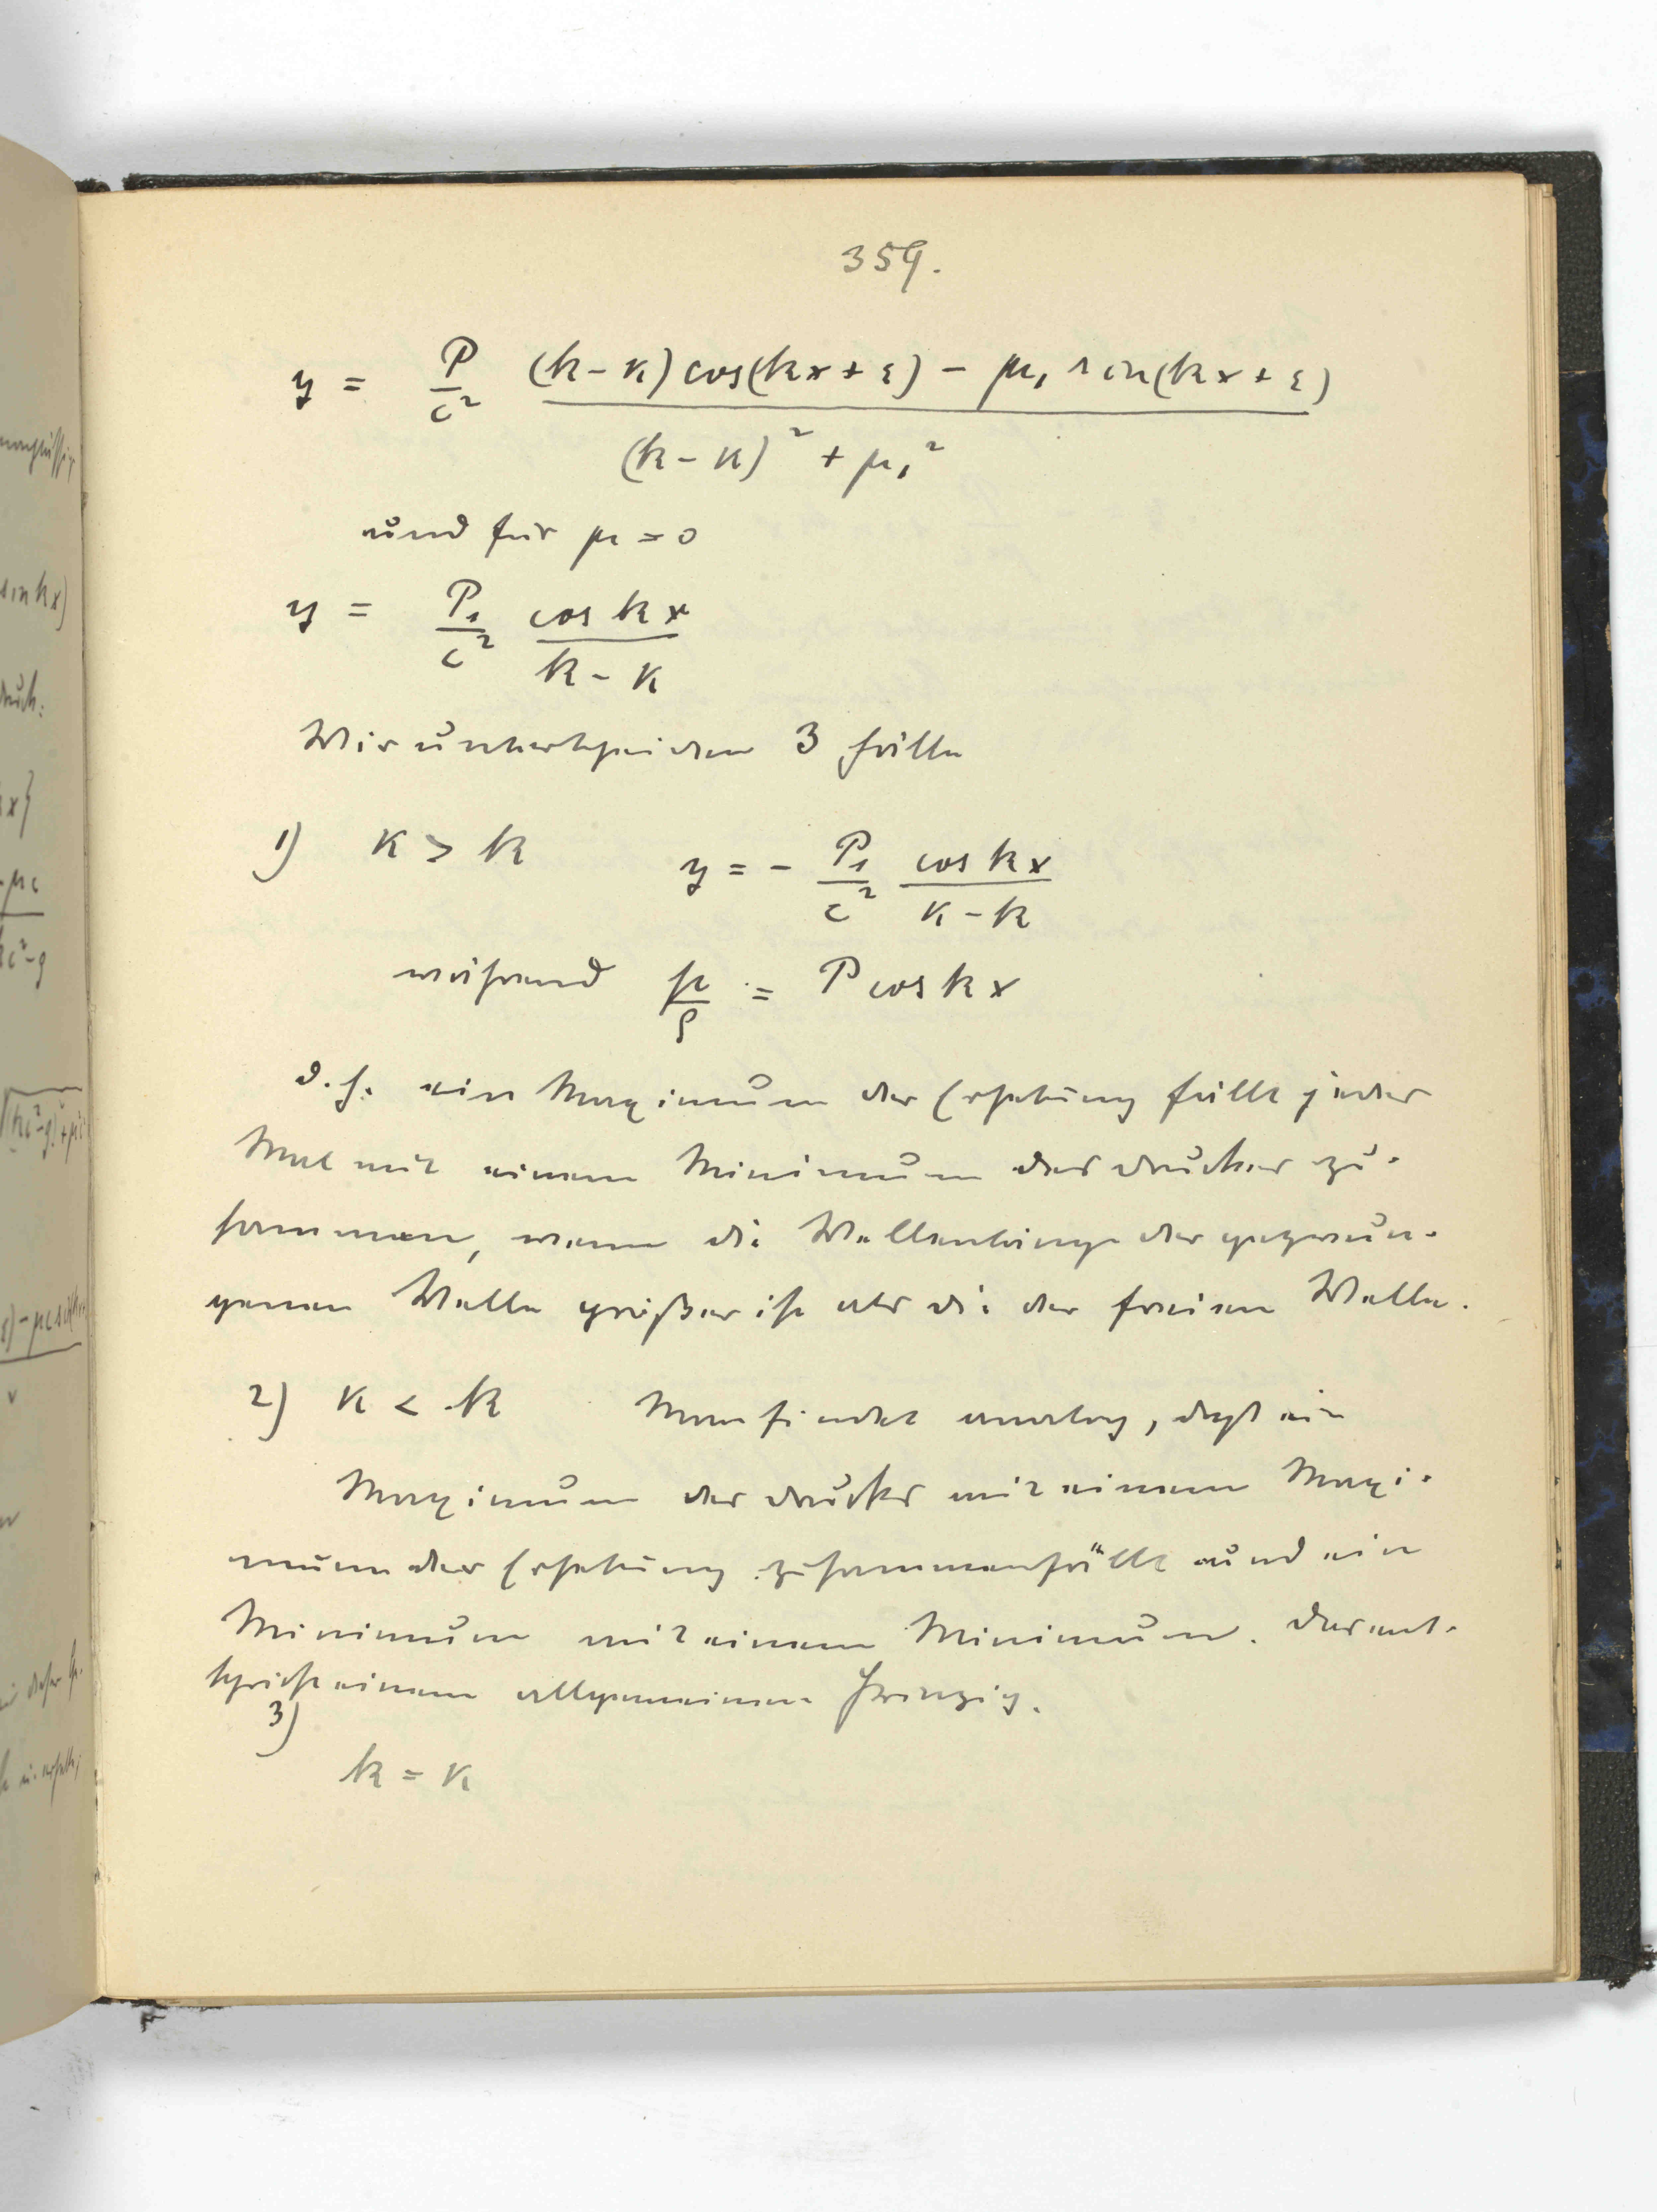 359.
y = P/c² ((k-κ) cos(kx+ε) - μ₁ sin(kx+ε))/((k-κ)² + μ₁²)
und für μ = 0
y = P₁/c² cos kx/(k-κ)
Wir unterscheiden 3 Fälle
1) κ > k y = - P₁/c² cos kx/(κ-k)
während p/ρ = P cos kx
d. h. ein Maximum der Erhebung fällt jedes
Mal mit einem Minimum des Druckes zu-
sammen, wenn die Wellenlänge der gezwun-
genen Welle größer ist als die der freien Welle.
2) κ < k Man findet analog, daß ein
Maximum des Druckes mit einem Maxi-
mum der Erhebung zusammenfällt und ein
Minimum mit einem Minimum. Das ent-
spricht einem allgemeinen Prinzip.
3)
k = κ